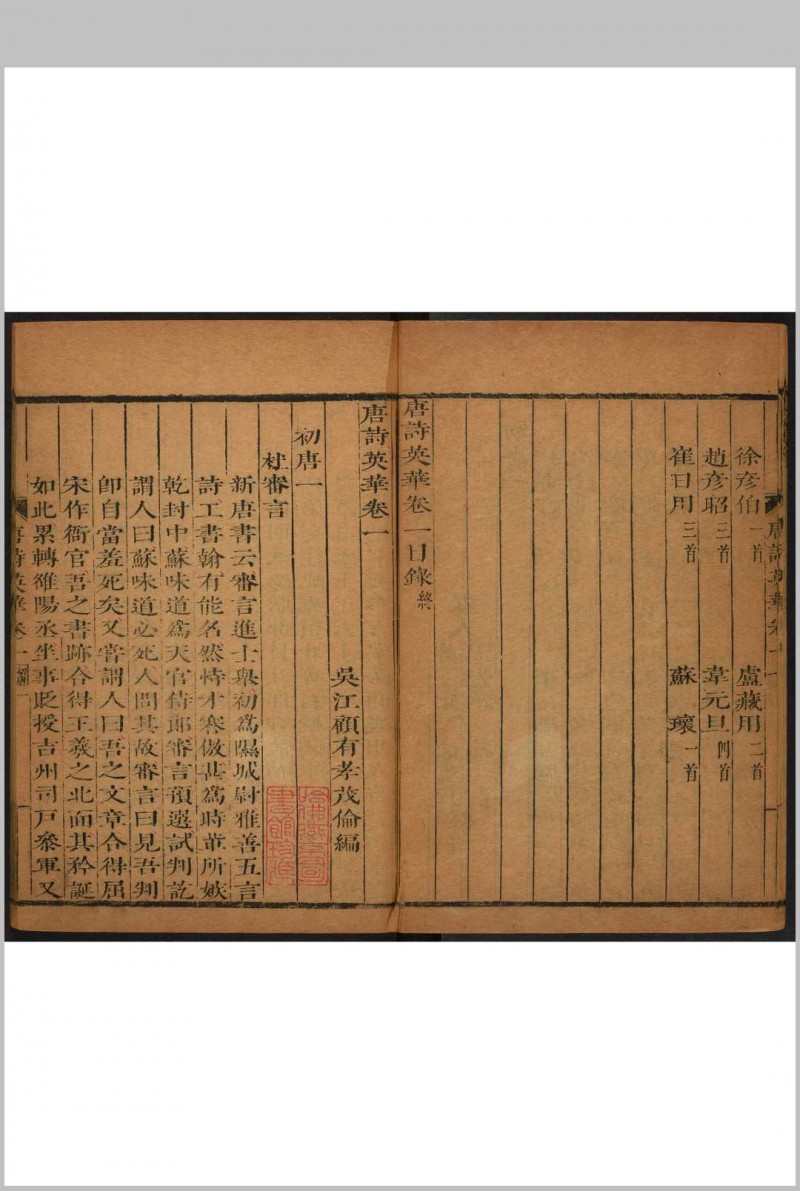 徐彥伯 一首 盧藏用 二首
趙彥昭 三首 韋元旦 四首
崔日用 三首 蘇瓌 一首
唐詩英華卷一目錄終
唐詩英華卷一
吳江顧有孝茂倫編
初唐一
杜審言
新唐書云審言進士舉初為隰城尉雅善五言
詩工書翰有能名然恃才謇傲甚爲時輩所嫉
乾封中蘇味道爲天官侍郎審言預選試判訖
謂人曰蘇味道必死人問其故審言曰見吾判
卽自當羞死矣又嘗謂人曰吾之文章合得屈
宋作衙官吾之書跡合得王羲之北面其矜誕
如此累轉雒陽丞坐事貶授吉州司戶參軍又
唐詩英華卷一